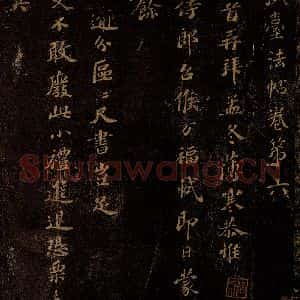 臺法帖卷第十六
昔弄拜孟冬漸寒恭惟
侍郎台候万福軾即日蒙
餘
過分區二尺書豈足
又不敢廢此小禮進退恐栗
Shufawang.CN